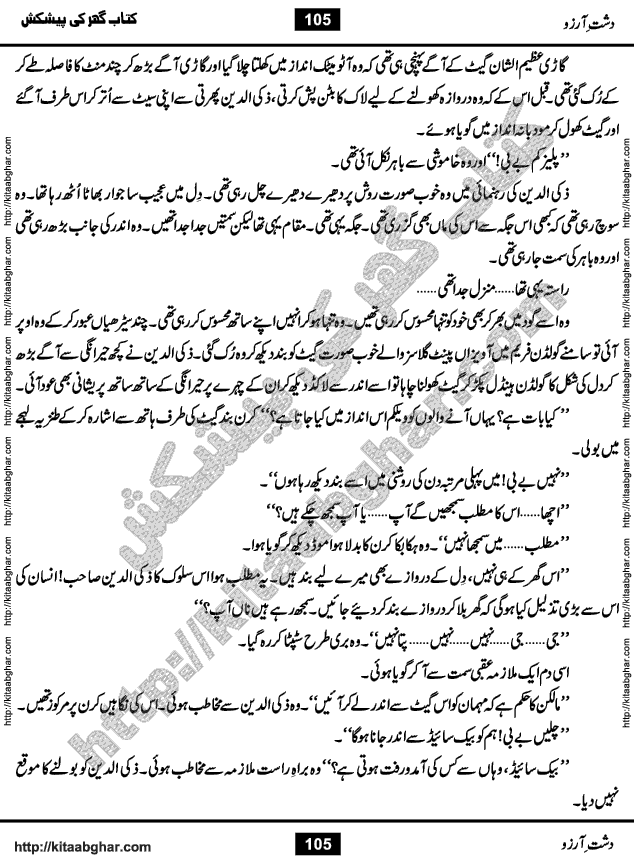 دشتِ آرزو 105 کتاب گھر کی پیشکش
گاڑی عظیم الشان گیٹ کے آگے پہنچی ہی تھی کہ وہ آٹومیٹک انداز میں کھلتا چلا گیا اور گاڑی آگے بڑھ کر چند منٹ کا فاصلہ طے کر
کے رُک گئی تھی۔ قبل اس کے کہ وہ دروازہ کھولنے کے لیے لاک کا بٹن پش کرتی، ذکی الدین پھرتی سے اپنی سیٹ سے اُتر کر اس طرف آ گئے
اور گیٹ کھول کر مودبانہ انداز میں گویا ہوئے۔
’’پلیز کم بے بی!‘‘ اور وہ خاموشی سے باہر نکل آئی تھی۔
ذکی الدین کی رہنمائی میں وہ خوب صورت روش پر دھیرے دھیرے چل رہی تھی۔ دِل میں عجیب سا جوار بھاٹا اُٹھ رہا تھا۔ وہ
سوچ رہی تھی کہ کبھی اس جگہ سے اس کی ماں بھی گزری تھی۔ جگہ یہی تھی۔ مقام یہی تھا لیکن سمتیں جدا جدا تھیں۔ وہ اندر کی جانب بڑھ رہی تھی
اور وہ باہر کی سمت جا رہی تھی۔
راستہ یہی تھا...... منزل جدا تھی......
وہ اسے گود میں بھر کر بھی خود کو تنہا محسوس کر رہی تھیں۔ وہ تنہا ہو کر انہیں اپنے ساتھ محسوس کر رہی تھی۔ چند سیڑھیاں عبور کر کے وہ اوپر
آئی تو سامنے گولڈن فریم میں آویزاں پینٹ گلاسز والے خوب صورت گیٹ کو بند دیکھ کر وہ رُک گئی۔ ذکی الدین نے کچھ حیرانگی سے آگے بڑھ
کر دل کی شکل کا گولڈن ہینڈل پکڑ کر گیٹ کھولنا چاہا تو اسے اندر سے لاکڈ دیکھ کر ان کے چہرے پر حیرانگی کے ساتھ ساتھ پریشانی بھی عود آئی۔
’’کیا بات ہے؟ یہاں آنے والوں کو ویلکم اس انداز میں کیا جاتا ہے؟‘‘ کرن بند گیٹ کی طرف ہاتھ سے اشارہ کر کے طنزیہ لہجے
میں بولی۔
’’نہیں بے بی! میں پہلی مرتبہ دن کی روشنی میں اسے بند دیکھ رہا ہوں‘‘۔
’’اچھا...... اس کا مطلب سمجھیں گے آپ...... یا آپ سمجھ چکے ہیں؟‘‘
’’مطلب...... میں سمجھا نہیں‘‘۔ وہ ہکا بکا کرن کا بدلا ہوا موڈ دیکھ کر گویا ہوا۔
’’اس گھر کے ہی نہیں، دِل کے دروازے بھی میرے لیے بند ہیں۔ یہ مطلب ہوا اس سلوک کا ذکی الدین صاحب! انسان کی
اس سے بڑی تذلیل کیا ہوگی کہ گھر بلا کر دروازے بند کر دیئے جائیں۔ سمجھ رہے ہیں ناں آپ؟‘‘
’’جی...... جی...... نہیں...... نہیں...... پتا نہیں‘‘۔ وہ بری طرح سٹپٹا کر رہ گیا۔
اسی دم ایک ملازمہ عقبی سمت سے آ کر گویا ہوئی۔
’’مالکن کا حکم ہے کہ مہمان کو اس گیٹ سے اندر لے کر آئیں‘‘۔ وہ ذکی الدین سے مخاطب ہوئی۔ اس کی نگاہیں کرن پر مرکوز تھیں۔
’’چلیں بے بی! ہم کو بیک سائیڈ سے اندر جانا ہوگا‘‘۔
’’بیک سائیڈ، وہاں سے کس کی آمدورفت ہوتی ہے؟‘‘ وہ براہِ راست ملازمہ سے مخاطب ہوئی۔ ذکی الدین کو بولنے کا موقع
نہیں دیا۔
http://kitaabghar.com http://kitaabghar.com http://kitaabghar.com http://kitaabghar.com http://kitaabghar.com http://kitaabghar.com
http://kitaabghar.com http://kitaabghar.com http://kitaabghar.com http://kitaabghar.com http://kitaabghar.com http://kitaabghar.com
کتاب گھر کی پیشکش
http://kitaabghar.com
دشتِ آرزو 105 http://kitaabghar.com